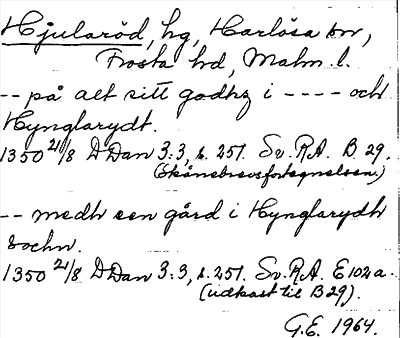 Hjularöd, hg, Harlösa sn,
Frosta hd, Malm. l.
-- på alt sitt godhz i ---- och
Hynglarydt.
1350 21/8 DDan 3:3, s. 251. Sv. R.A. B 29.
(Skånebrevsfortegnelsen.)
-- medh een gård i Hynglarydh
sochn.
1350 21/8 DDan 3:3, s. 251. Sv. R.A. E 102a.
(udkast til B29).
G.E. 1964.